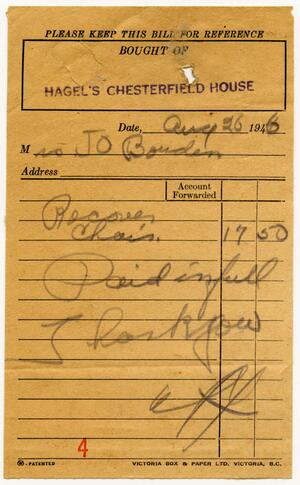 PLEASE KEEP THIS BILL FOR REFERENCE
BOUGHT OF
HAGEL'S CHESTERFIELD HOUSE
Date, Aug 26 1946
Mrs J O Bowden
Address
Account
Forwarded
Recover
Chair 17 50
Paid in full
Thank you
4
PATENTED VICTORIA BOX & PAPER LTD. VICTORIA, B.C.